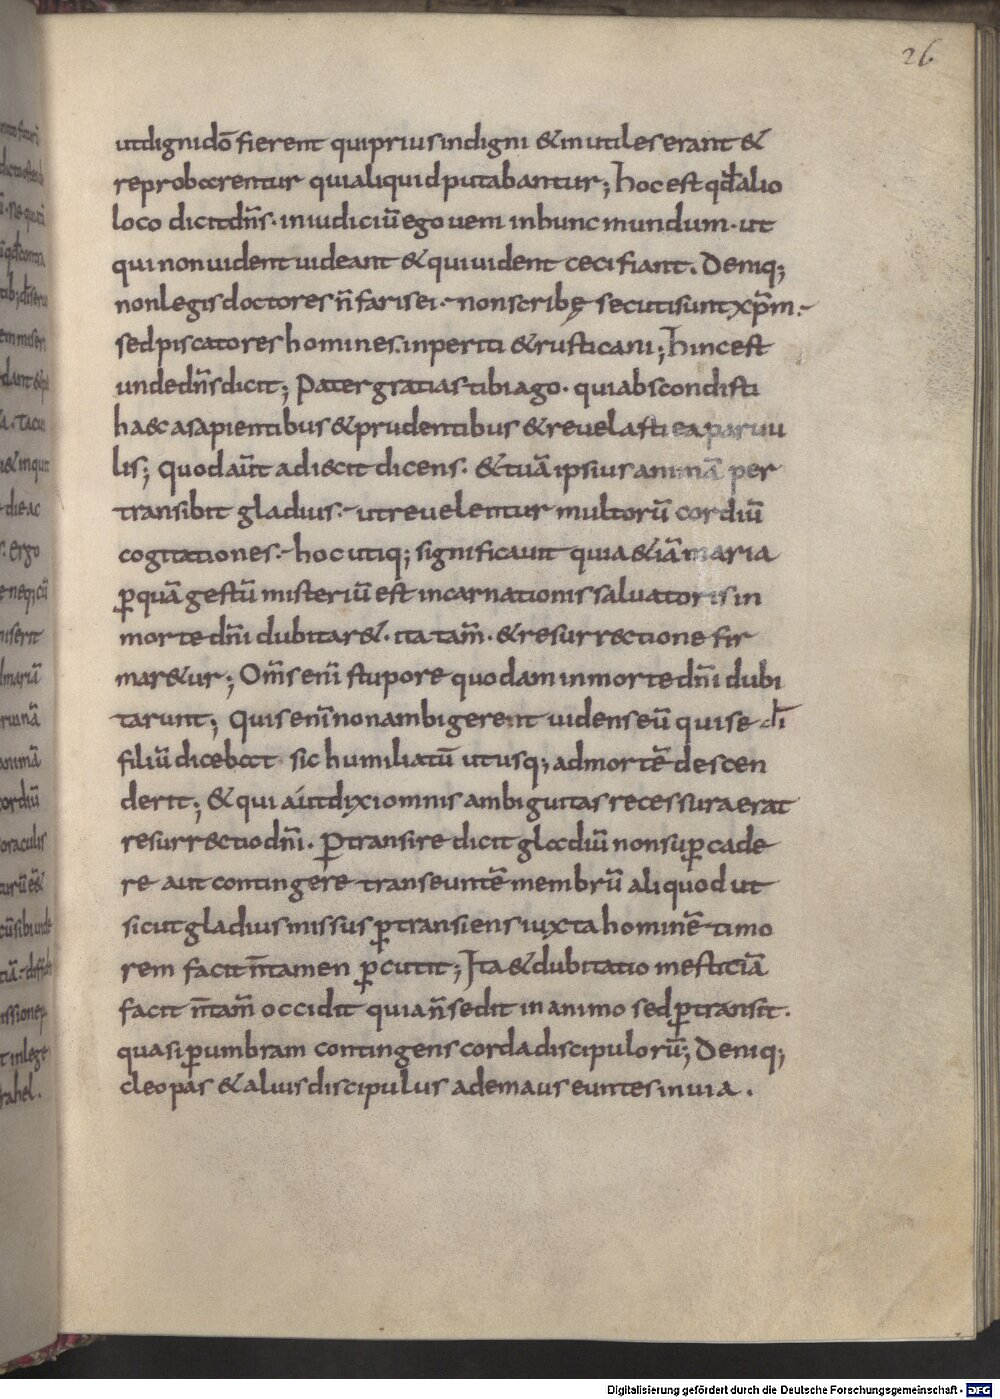 26
ut digni dō fierent qui prius indigni & inutiles erant &
reprobarentur qui aliquid putabantur; hoc est qđ alio
loco dicit dn̄s· in iudiciū ego ueni in hunc mundum· ut
qui non uident uideant & qui uident ceci fiant. Deniq;
non legis doctores n̄ farisei· non scribę secuti sunt xp̄m·
sed piscatores homines inperiti & rusticani; Hinc est
unde dn̄s dicit; Pater gratias tibi ago· quia abscondisti
haec a sapientibus & prudentibus & reuelasti ea paruu
lis; Quod aūt adiecit dicens· & tuā ipsius animā per
transibit gladius· ut reuelentur multorū cordiū
cogitationes· hoc utiq; significauit quia & iā maria
ꝑ quā gestū misteriū est incarnationis saluatoris in
morte dn̄i dubitar&· ita tam̄· & resurrectione fir
mar&ur; Om̄s enī stupore quodam in morte dn̄i dubi
tarunt; Quis enī non ambigerent uidens eū qui se dī
filiū dicebat sic humiliatū ut usq; ad mortē descen
derit; & qui aūt dixi omnis ambiguitas recessura erat
resurrectio dn̄i. Ꝑtransire dicit gladiū non suꝑcade
re aut contingere transeuntē membrū aliquod ut
sicut gladius missus ꝑtransiens iuxta hominē timo
rem facit n̄ tamen ꝑcutit; Ita & dubitatio mesticiā
facit n̄ tam̄ occidit quia n̄ sedit in animo sed ꝑtransit·
quasi ꝑ umbram contingens corda discipulorū; Deniq;
cleopas & alius discipulus ad emaus euntes in uia.
Digitalisierung gefördert durch die Deutsche Forschungsgemeinschaft - DFG